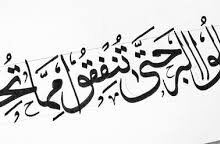 لوا البر حتى تنفقوا مما تح